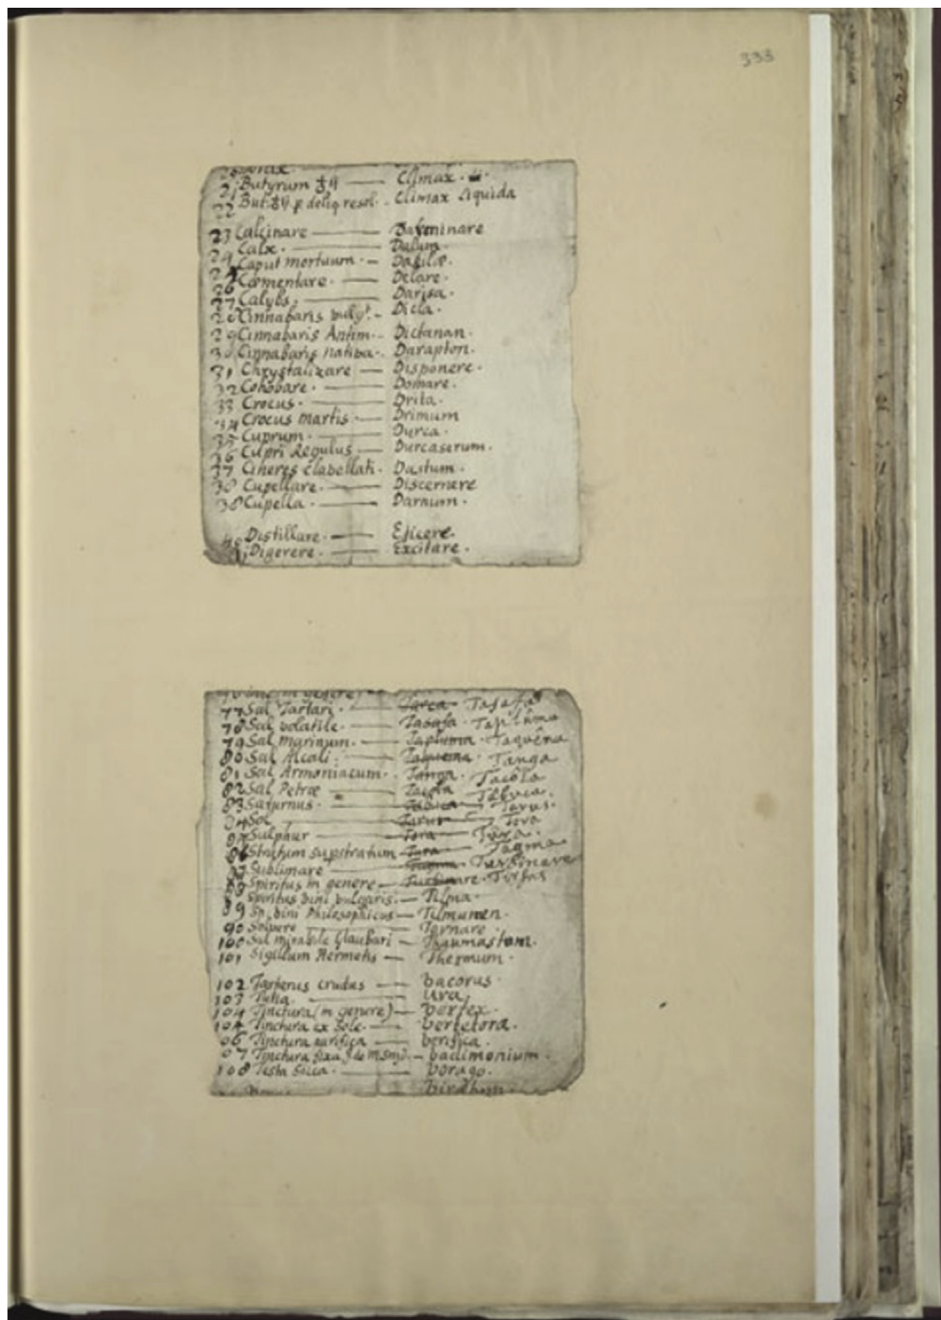 333
21 Butyrum ♁ij —— Climax
22 But: ♁ij p deliq resol. - Climax Liquida
23 Calcinare —— Dafeninare
24 Calx. —— Dalum.
Caput mortuum. — Dasilæ.
26 Cæmentare. —— Delare.
27 Calybs, —— Darisa.
28 Cinnabaris vulg. - Dicla.
29 Cinnabaris Antim. - Dictanan.
30 Cinnabaris nativa. Darapton.
31 Chrystalizare — Disponere.
32 Cohobare. —— Domare.
33 Crocus. —— Drita.
34 Crocus martis — Drimum
35 Cuprum. —— Durca.
36 Cupri Regulus —— Durcaserum.
37 Cineres elabellati. Dastum.
38 Cupellare. —— Discernere
38 Cupella. —— Darnum.
40 Distillare. —— Ejicere.
Digerere. —— Excitare.
77 Sal Tartari. —— Tarca Tasafa
78 Sal volatile. —— Tasafa. Taplûma
79 Sal marinum. —— Tapluma. Taquêna
80 Sal Alcali. —— Taquena. Tanga
81 Sal Armoniacum. Tanga. Tacôla
82 Sal Petræ —— Tacola
83 Saturnus. —— Tarus.
84 Sol —— Tarus Tora
Sulphur —— Tora Tura.
86 Stratum supstratum Tura Tagma
87 Sublimare —— Tagma Turbinare
Spiritus in genere — Turbinare.
Spiritus vini vulgaris. — Tilma.
89 Sp. vini Philosophicus — Tilmumen.
90 Solvere —— Tornare.
100 Sal mirabile Glauberi — Thaumastum.
101 Sigillum Hermetis — Thermum.
102 Tartarus crudus —— Vacorus.
103 Tutia. —— Ura,
104 Tinctura (in genere) — Vertex.
104 Tinctura ex Sole. — Vertetora.
06 Tinctura aurifica —— Verifica.
07 Tinctura fixa — Vadimonium.
108 Testa sicca. —— Vorago.